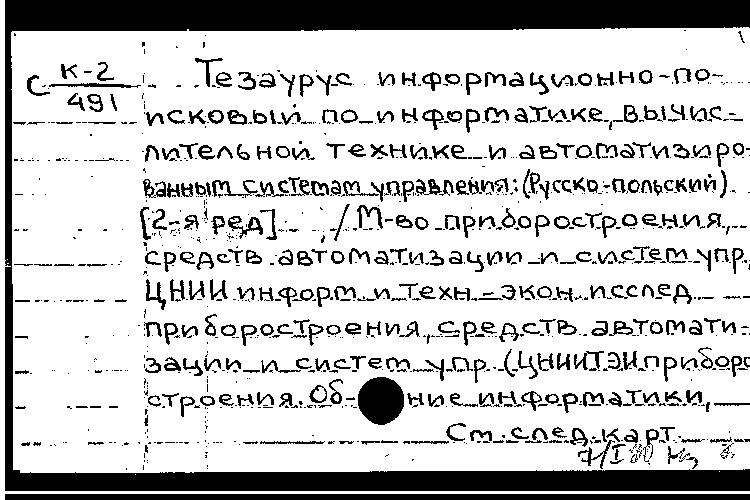 С К-2
491
Тезаурус информационно-по-
исковый по информатике, вычис-
лительной технике и автоматизиро-
ванным системам управления: (Русско-польский)
[2-я ред] / М-во приборостроения,
средств автоматизации и систем упр.,
ЦНИИ информ. и техн-экон. исслед
приборостроения, средств автомати-
зации и систем упр. (ЦНИИТЭИприборо
строения. Об- ние информатики,
См. след. карт.
7/I 80